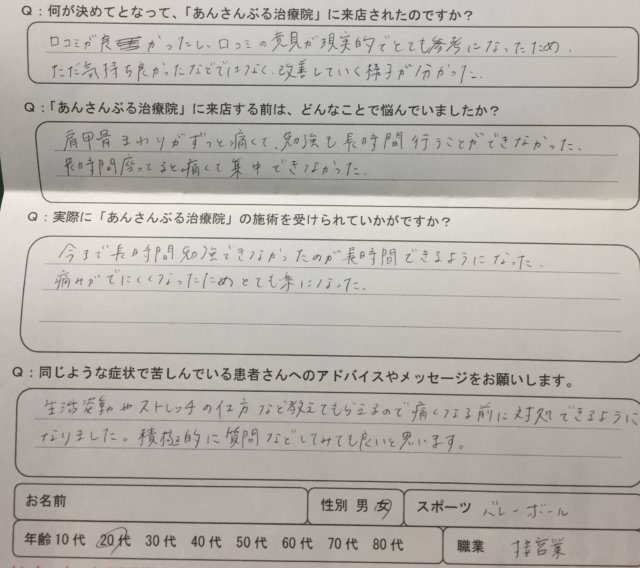 Q：何が決めてとなって、「あんさんぶる治療院」に来店されたのですか？
口コミが良かったし、口コミの意見が現実的でとても参考になったため.
ただ気持ち良かったなどではなく、改善していく様子が分かった.
Q：「あんさんぶる治療院」に来店する前は、どんなことで悩んでいましたか？
肩甲骨まわりがずっと痛くて、勉強も長時間行うことができなかった.
長時間座ってると痛くて集中できなかった.
Q：実際に「あんさんぶる治療院」の施術を受けられていかがですか？
今まで長時間勉強できなかったのが長時間できるようになった.
痛みがでにくくなったためとても楽になった.
Q：同じような症状で苦しんでいる患者さんへのアドバイスやメッセージをお願いします。
生活姿勢やストレッチの仕方など教えてもらえるので痛くなる前に対処できるように
なりました。積極的に質問などしてみても良いと思います。
お名前 性別 男 女 スポーツ バレーボール
年齢 10代 20代 30代 40代 50代 60代 70代 80代 職業